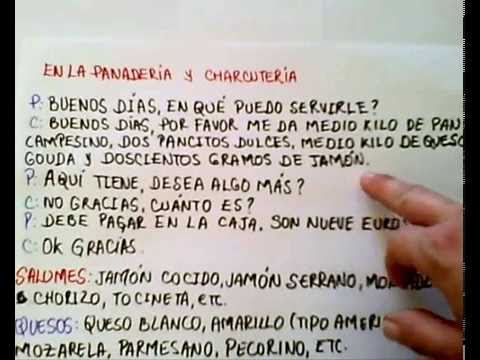 EN LA PANADERÍA Y CHARCUTERÍA
P: BUENOS DÍAS, EN QUÉ PUEDO SERVIRLE?
C: BUENOS DÍAS, POR FAVOR ME DA MEDIO KILO DE PAN
CAMPESINO, DOS PANCITOS DULCES, MEDIO KILO DE QUESO
GOUDA Y DOSCIENTOS GRAMOS DE JAMÓN.
P: AQUÍ TIENE, DESEA ALGO MÁS?
C: NO GRACIAS, CUÁNTO ES?
P: DEBE PAGAR EN LA CAJA, SON NUEVE EURO
C: OK GRACIAS.
SALOMES: JAMÓN COCIDO, JAMÓN SERRANO,
CHORIZO, TOCINETA, ETC.
QUESOS: QUESO BLANCO, AMARILLO (TIPO AMERI
MOZARELA, PARMESANO, PECORINO, ETC.